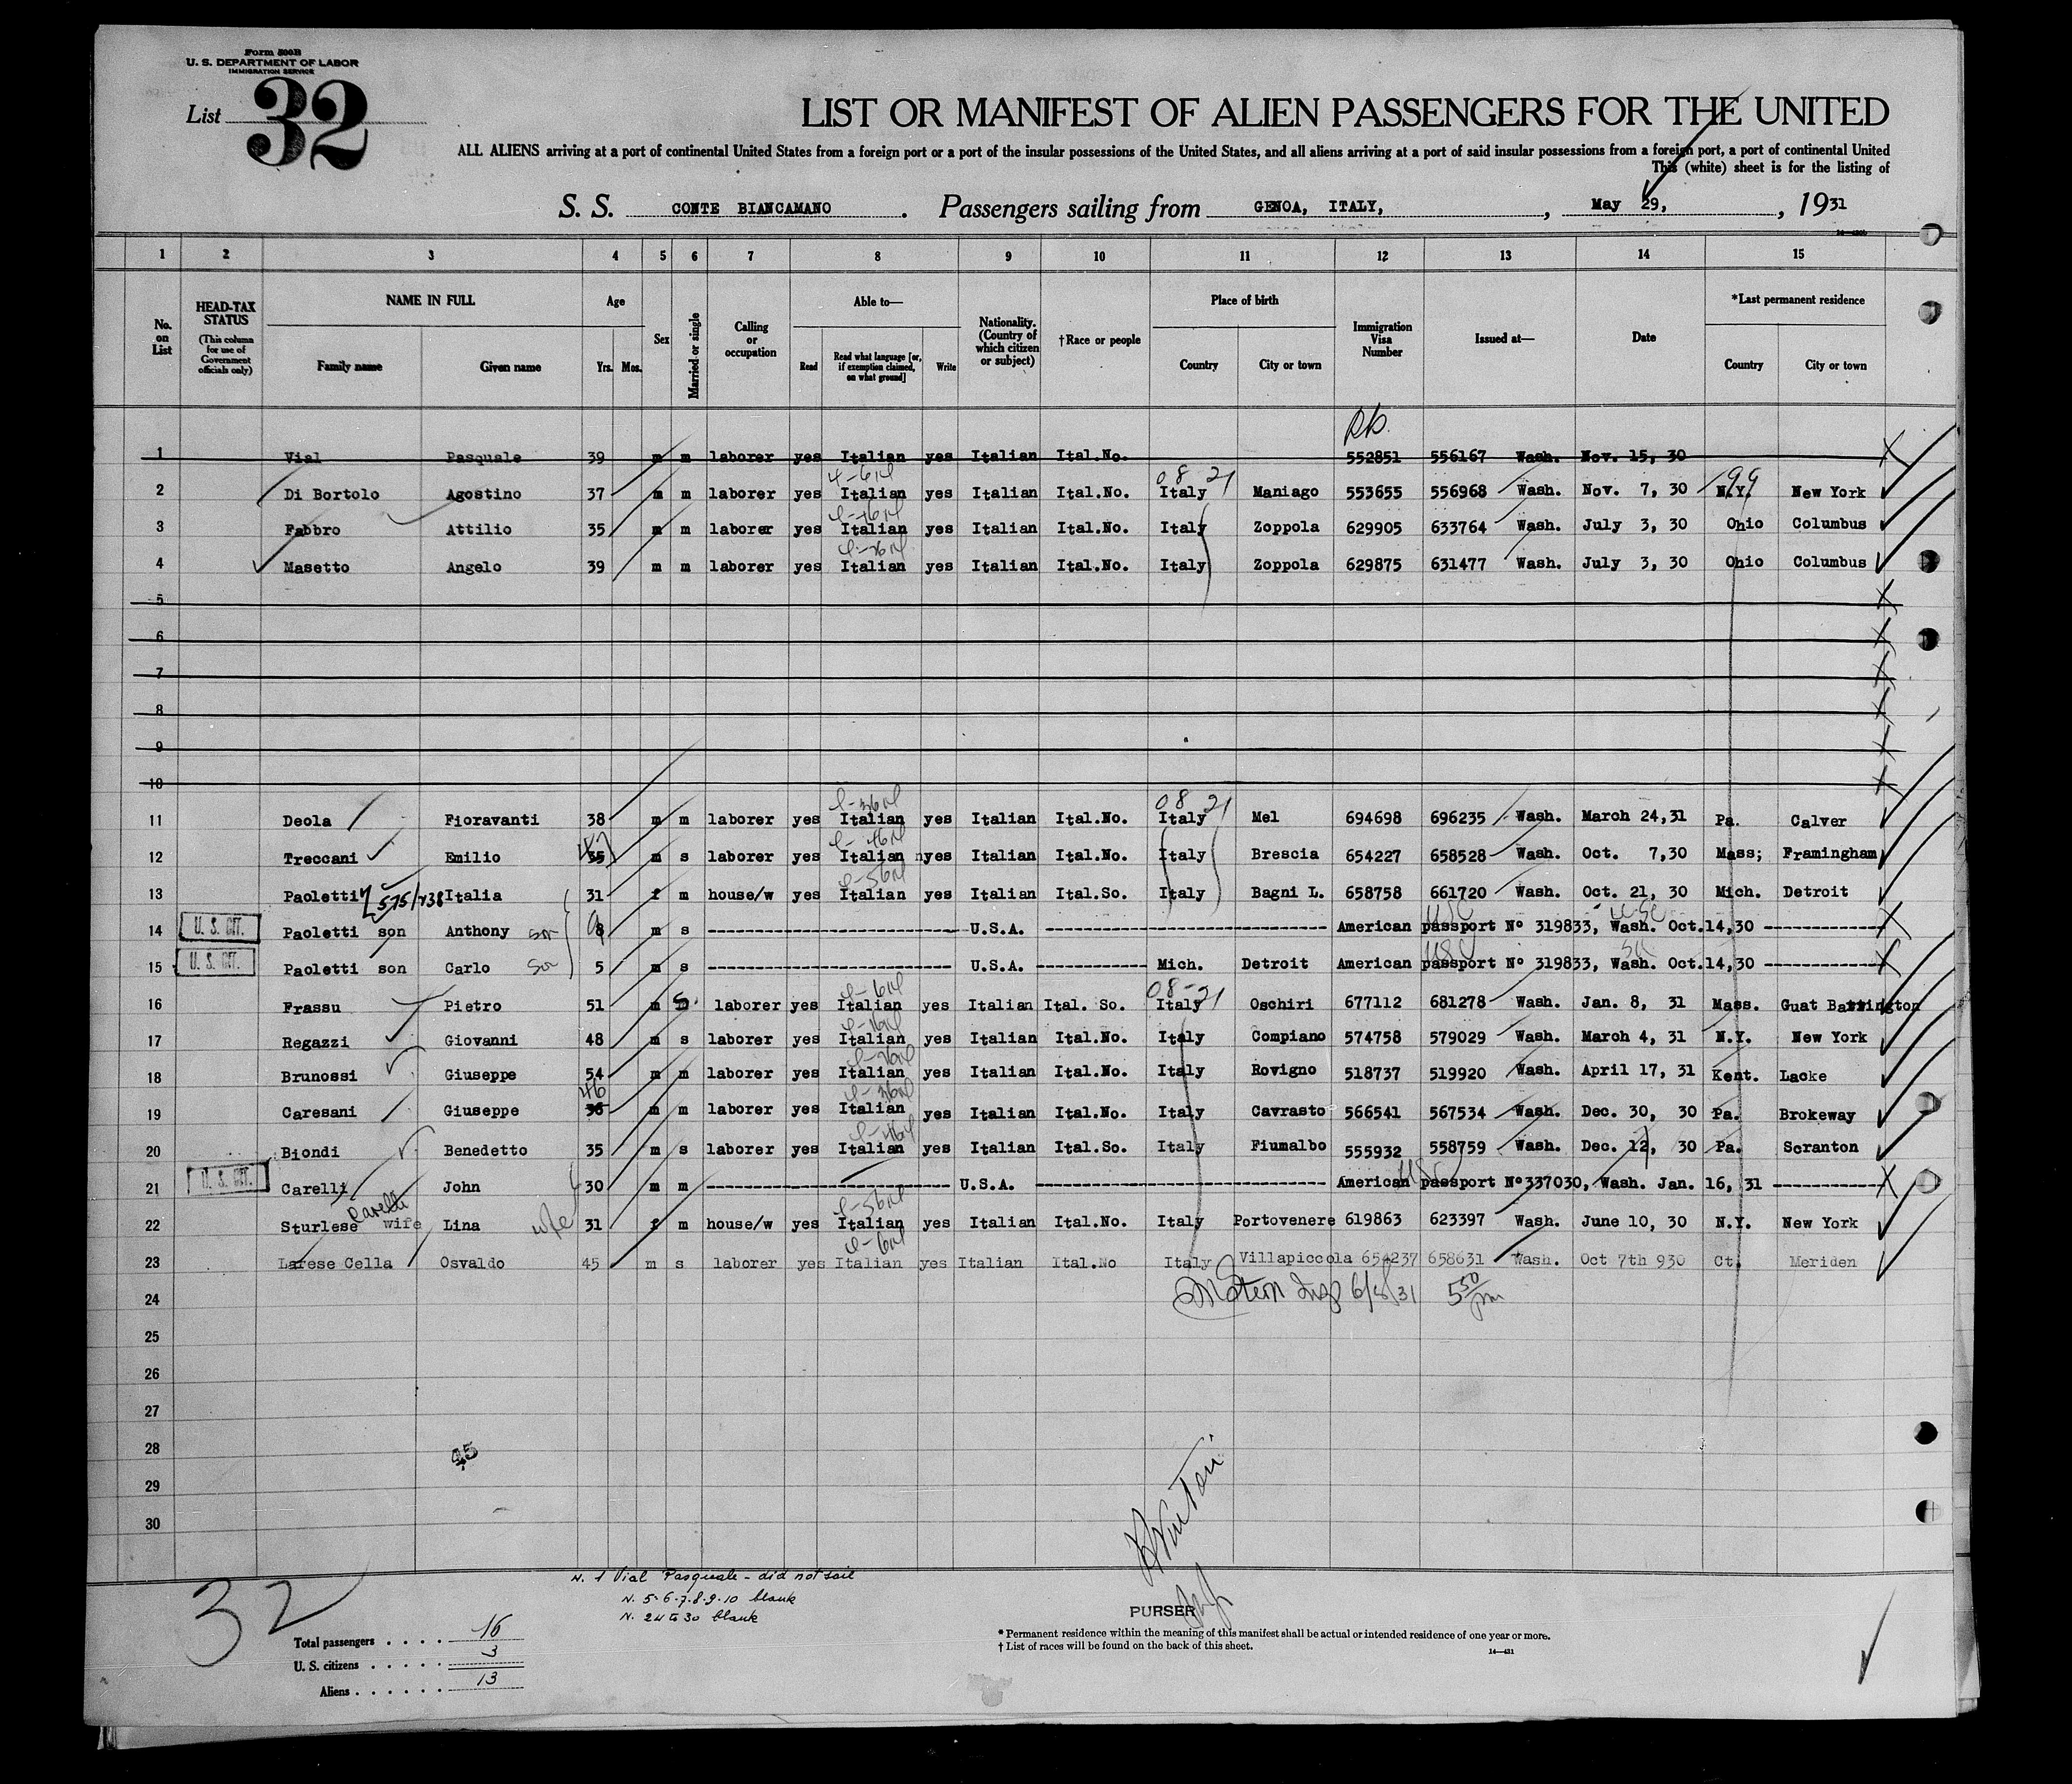 Form 500B
U. S. DEPARTMENT OF LABOR
IMMIGRATION SERVICE
List 32
LIST OR MANIFEST OF ALIEN PASSENGERS FOR THE UNITED
ALL ALIENS arriving at a port of continental United States from a foreign port or a port of the insular possessions of the United States, and all aliens arriving at a port of said insular possessions from a foreign port, a port of continental United
This (white) sheet is for the listing of
S. S. CONTE BIANCAMANO . Passengers sailing from GENOA, ITALY, , May 29, , 1931
1 2 3 4 5 6 7 8 9 10 11 12 13 14 15
No. on List
HEAD-TAX STATUS (This column for use of Government officials only)
NAME IN FULL
Family name Given name
Age
Yrs. Mos.
Sex
Married or single
Calling or occupation
Able to—
Read Read what language [or, if exemption claimed, on what ground] Write
Nationality. (Country of which citizen or subject)
†Race or people
Place of birth
Country City or town
Immigration Visa Number
Issued at—
Date
*Last permanent residence
Country City or town
1 Vial Pasquale 39 m m laborer yes Italian yes Italian Ital.No. 552851 556167 Wash. Nov. 15, 30
08 21 99
2 Di Bortolo Agostino 37 m m laborer yes Italian yes Italian Ital.No. Italy Maniago 553655 556968 Wash. Nov. 7, 30 N.Y. New York
3 Fabbro Attilio 35 m m laborer yes Italian yes Italian Ital.No. Italy Zoppola 629905 633764 Wash. July 3, 30 Ohio Columbus
4 Masetto Angelo 39 m m laborer yes Italian yes Italian Ital.No. Italy Zoppola 629875 631477 Wash. July 3, 30 Ohio Columbus
5
6
7
8
9
10
08 21
11 Deola Fioravanti 38 m m laborer yes Italian yes Italian Ital.No. Italy Mel 694698 696235 Wash. March 24,31 Pa. Calver
12 Treccani Emilio 35 47 m s laborer yes Italian yes Italian Ital.No. Italy Brescia 654227 658528 Wash. Oct. 7,30 Mass; Framingham
13 Paoletti 575/738 Italia 31 f m house/w yes Italian yes Italian Ital.So. Italy Bagni L. 658758 661720 Wash. Oct. 21, 30 Mich. Detroit
14 U. S. CIT. Paoletti son Anthony son 8 m s U.S.A. American passport Nº 319833, Wash. Oct.14,30 USC
15 U. S. CIT. Paoletti son Carlo son 5 m s U.S.A. Mich. Detroit American passport Nº 319833, Wash. Oct.14,30 USC
08-21
16 Frassu Pietro 51 m m S. laborer yes Italian yes Italian Ital. So. Italy Oschiri 677112 681278 Wash. Jan. 8, 31 Mass. Guat Barrington
17 Regazzi Giovanni 48 m s laborer yes Italian yes Italian Ital.No. Italy Compiano 574758 579029 Wash. March 4, 31 N.Y. New York
18 Brunossi Giuseppe 54 m m laborer yes Italian yes Italian Ital.No. Italy Rovigno 518737 519920 Wash. April 17, 31 Kent. Lacke
19 Caresani Giuseppe 36 46 m m laborer yes Italian yes Italian Ital.No. Italy Cavrasto 566541 567534 Wash. Dec. 30, 30 Pa. Brokeway
20 Biondi Benedetto 35 m s laborer yes Italian yes Italian Ital.So. Italy Fiumalbo 555932 558759 Wash. Dec. 12, 30 Pa. Scranton
21 U. S. CIT. Carelli John 30 m m U.S.A. American passport Nº337030, Wash. Jan. 16, 31 USC
22 Sturlese Carelli wife Lina wife 31 f m house/w yes Italian yes Italian Ital.No. Italy Portovenere 619863 623397 Wash. June 10, 30 N.Y. New York
23 Larese Cella Osvaldo 45 m s laborer yes Italian yes Italian Ital.No Italy Villapiccola 654237 658631 Wash. Oct 7th 930 Ct. Meriden
24 Stern Insp 6/8/31 5 50 pm
25
26
27
28
29
30
45
32
N. 1 Vial Pasquale - did not sail
N. 5-6-7-8-9-10 blank
N. 24 to 30 blank
PURSER
Total passengers . . . . 16
U. S. citizens . . . . . 3
Aliens . . . . . . 13
* Permanent residence within the meaning of this manifest shall be actual or intended residence of one year or more.
† List of races will be found on the back of this sheet.
14—431